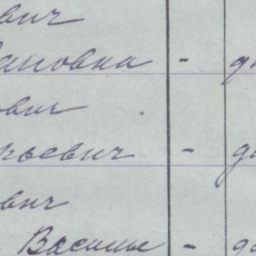 вич
ановна - д
ович
рьевич - д
вич
Василье - д